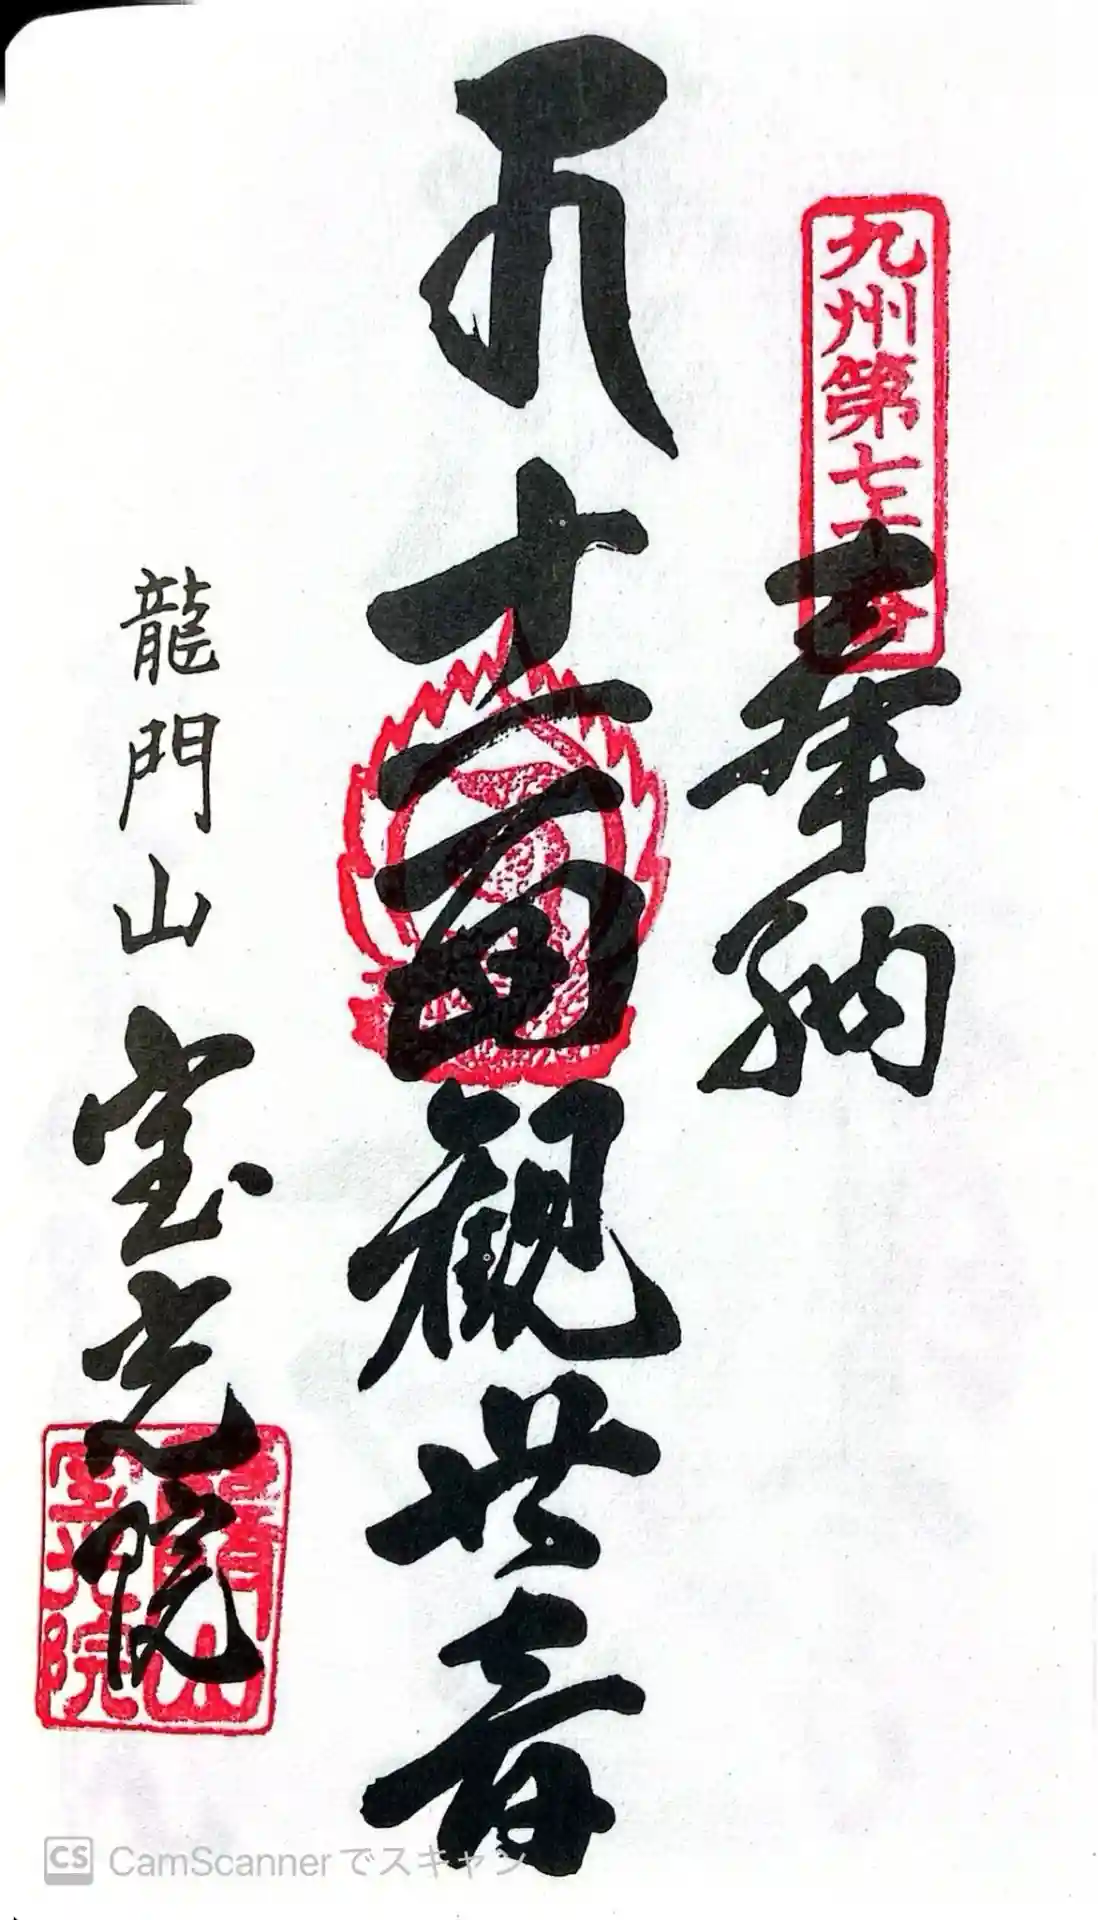 九州第七
奉納
十一面観世音
龍門山 宝光院
龍門山
宝光院
CS CamScannerでスキャン